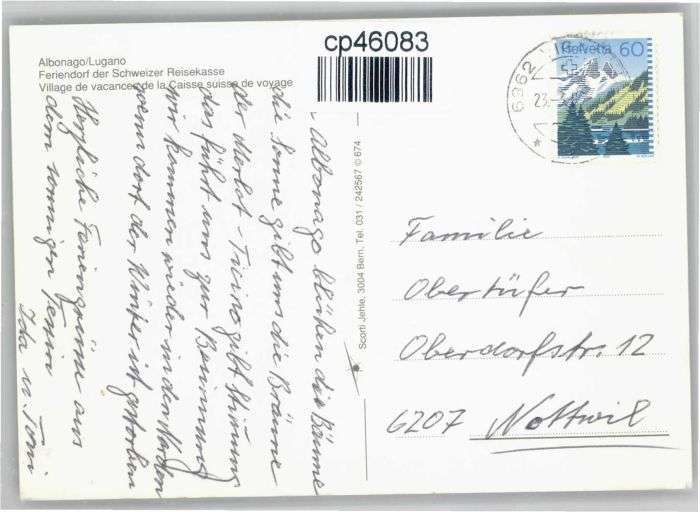 Albonago/Lugano
Feriendorf der Schweizer Reisekasse
Village de vacances de la Caisse suisse de voyage
cp46083
Helvetia 60
6962
23.
In Albonago blühen die Bäume
die Sonne gibt uns die Bräune
der Merlot-Ticino gibt Stimmung
das führt uns zur Besinnung
wir kommen wieder in den Norden
wenn dort der Winter ist gestorben
Herzliche Feriengrüsse aus
dem sonnigen Tessin
Ida u. Toni
Scorti Jehle, 3004 Bern, Tel. 031 / 242567 © 674
Familie
Obertüfer
Oberdorfstr. 12
6207 Nottwil